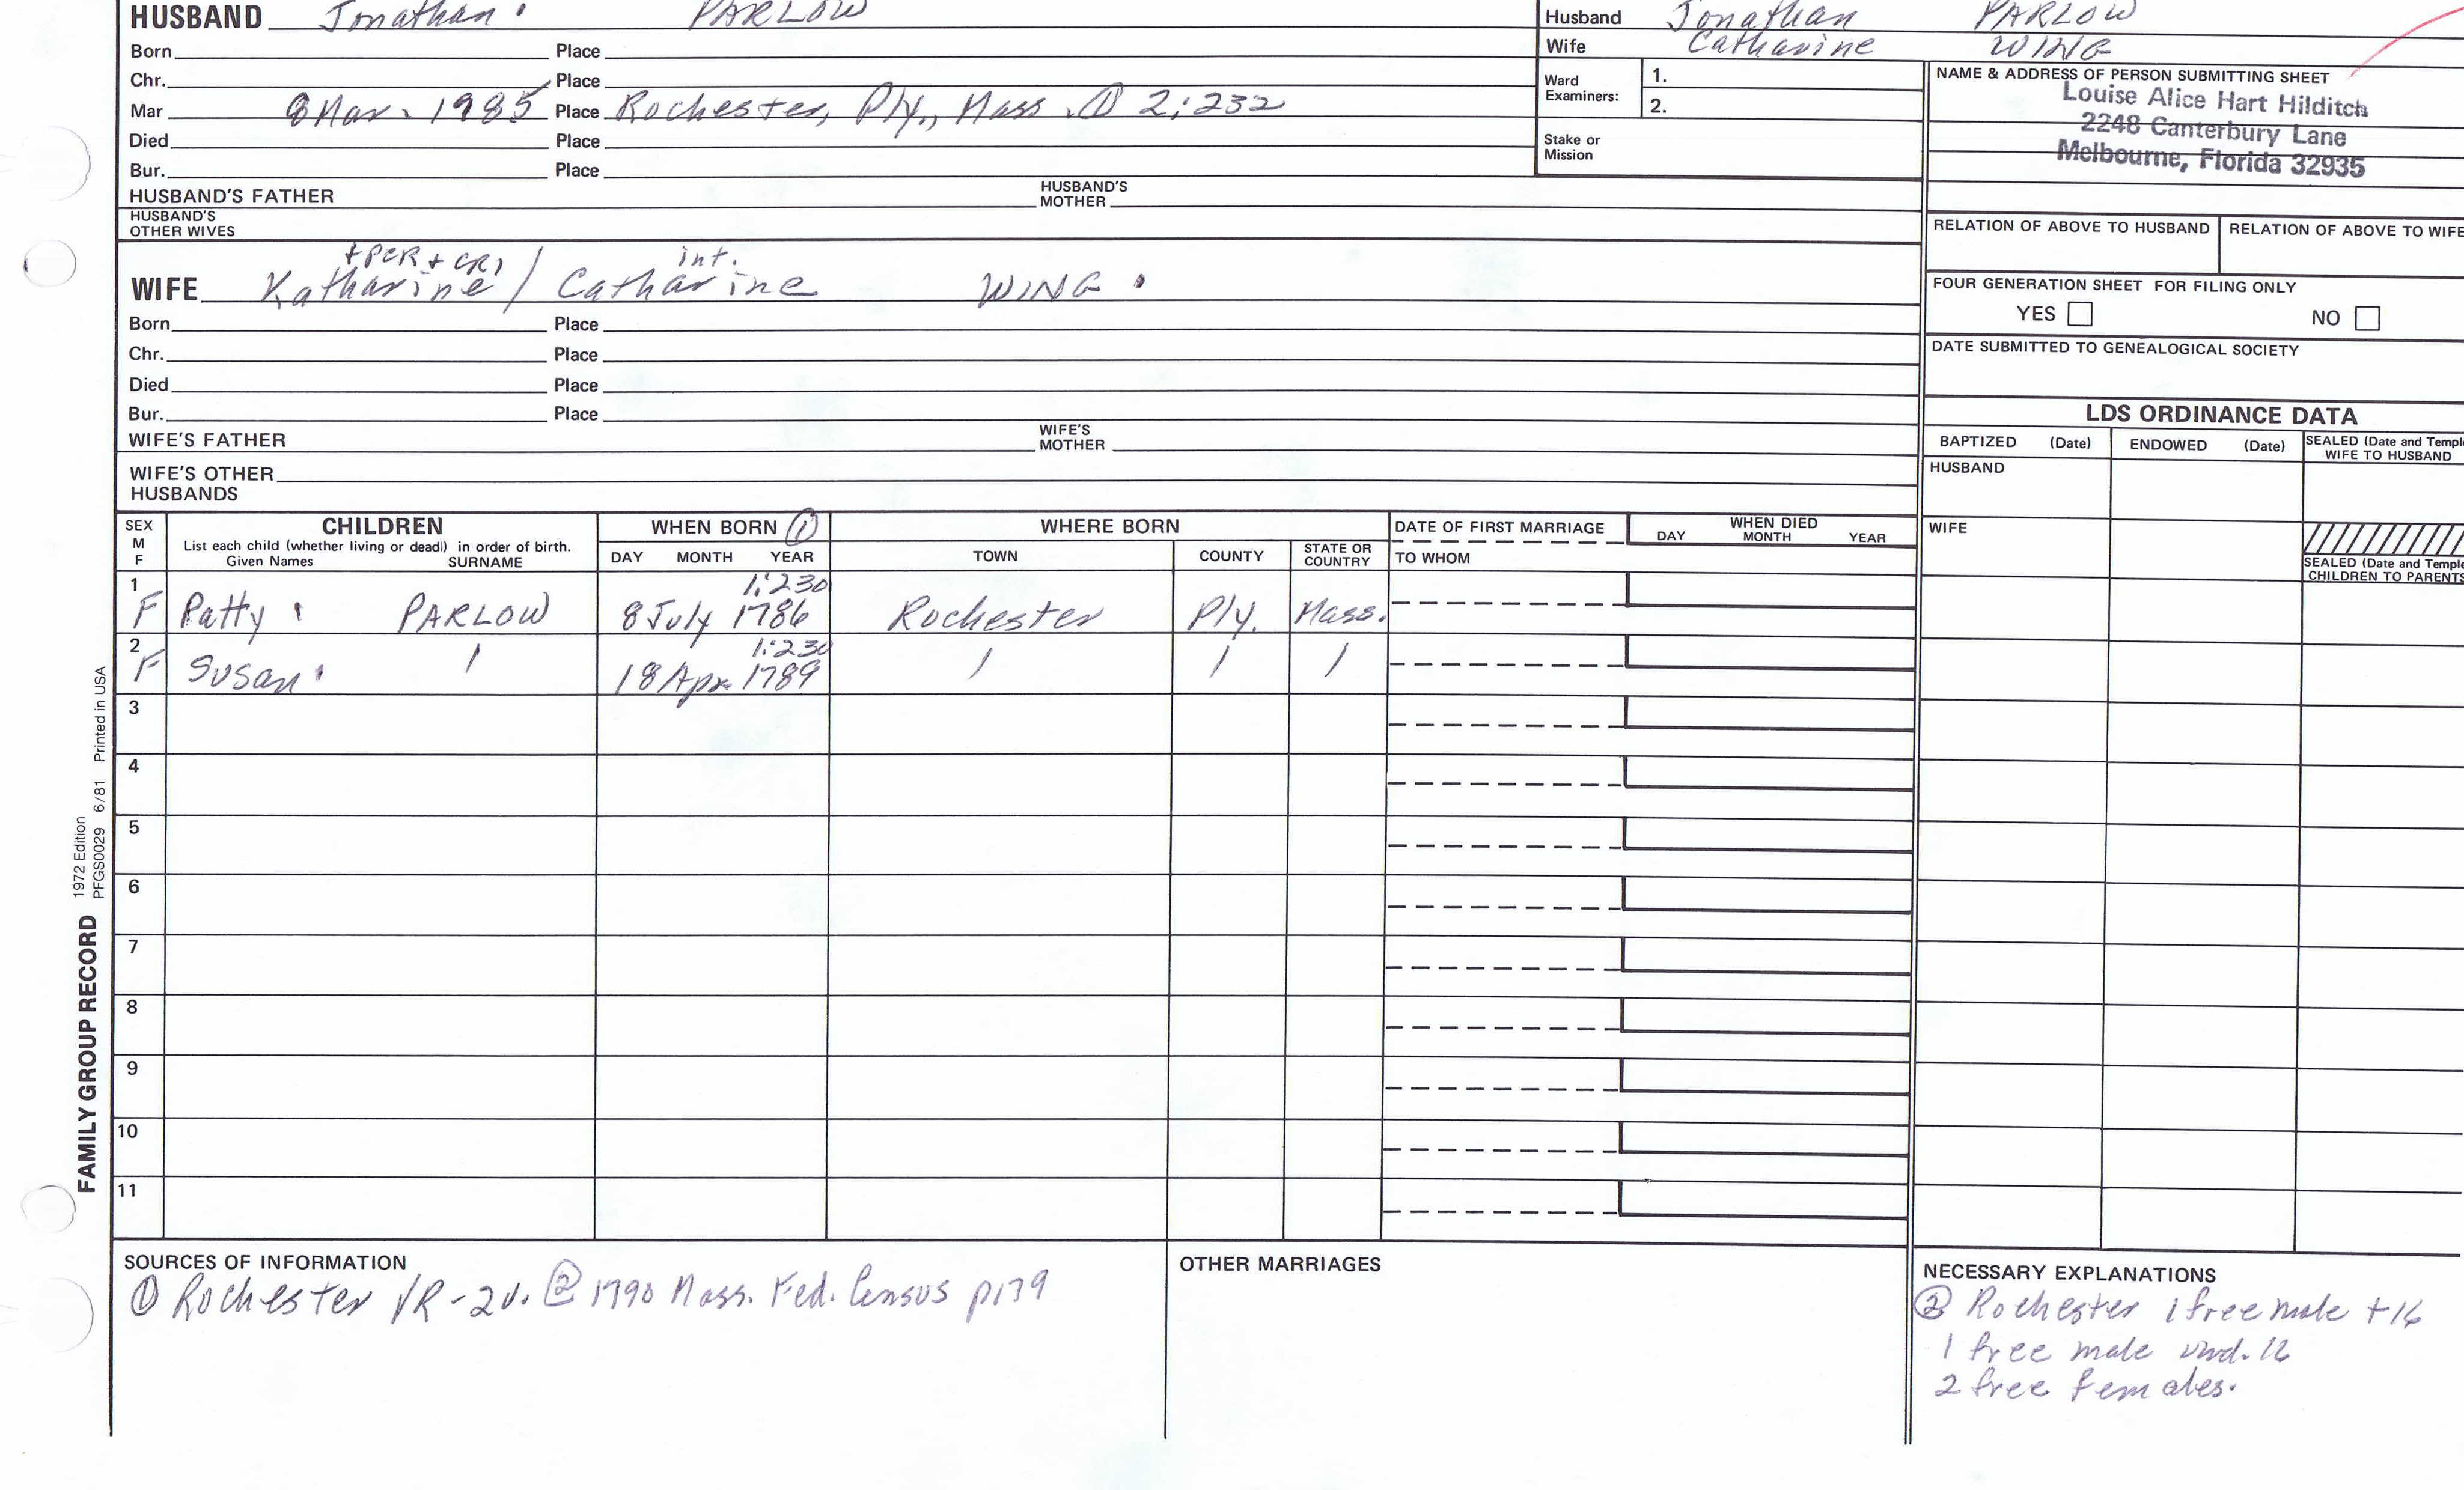 HUSBAND Jonathan PARLOW
Born Place
Chr. Place
Mar 8 Mar. 1985 Place Rochester, Ply., Mass. ① 2:232
Died Place
Bur. Place
HUSBAND'S FATHER HUSBAND'S MOTHER
HUSBAND'S OTHER WIVES
Husband Jonathan PARLOW
Wife Catharine WING
Ward Examiners: 1.
2.
Stake or Mission
NAME & ADDRESS OF PERSON SUBMITTING SHEET
Louise Alice Hart Hilditch
2248 Canterbury Lane
Melbourne, Florida 32935
RELATION OF ABOVE TO HUSBAND RELATION OF ABOVE TO WIFE
FOUR GENERATION SHEET FOR FILING ONLY
YES NO
DATE SUBMITTED TO GENEALOGICAL SOCIETY
+PCR + CR1 int.
WIFE Katharine / Catharine WING
Born Place
Chr. Place
Died Place
Bur. Place
WIFE'S FATHER WIFE'S MOTHER
WIFE'S OTHER HUSBANDS
LDS ORDINANCE DATA
BAPTIZED (Date) ENDOWED (Date) SEALED (Date and Temple WIFE TO HUSBAND
HUSBAND
WIFE
SEALED (Date and Temple CHILDREN TO PARENTS
SEX M F
CHILDREN
List each child (whether living or dead) in order of birth.
Given Names SURNAME
WHEN BORN ①
DAY MONTH YEAR
WHERE BORN
TOWN COUNTY STATE OR COUNTRY
DATE OF FIRST MARRIAGE
TO WHOM
WHEN DIED
DAY MONTH YEAR
1 1:230
F Patty PARLOW 8 July 1786 Rochester Ply. Mass.
2 1:230
F Susan / 18 Apr. 1789 / / /
3
4
5
6
7
8
9
10
11
FAMILY GROUP RECORD
1972 Edition
PFGS0029 6/81 Printed in USA
SOURCES OF INFORMATION
① Rochester VR-2v. ② 1790 Mass. Fed. Census p179
OTHER MARRIAGES
NECESSARY EXPLANATIONS
② Rochester 1 free male +16
1 free male und. 16
2 free females.